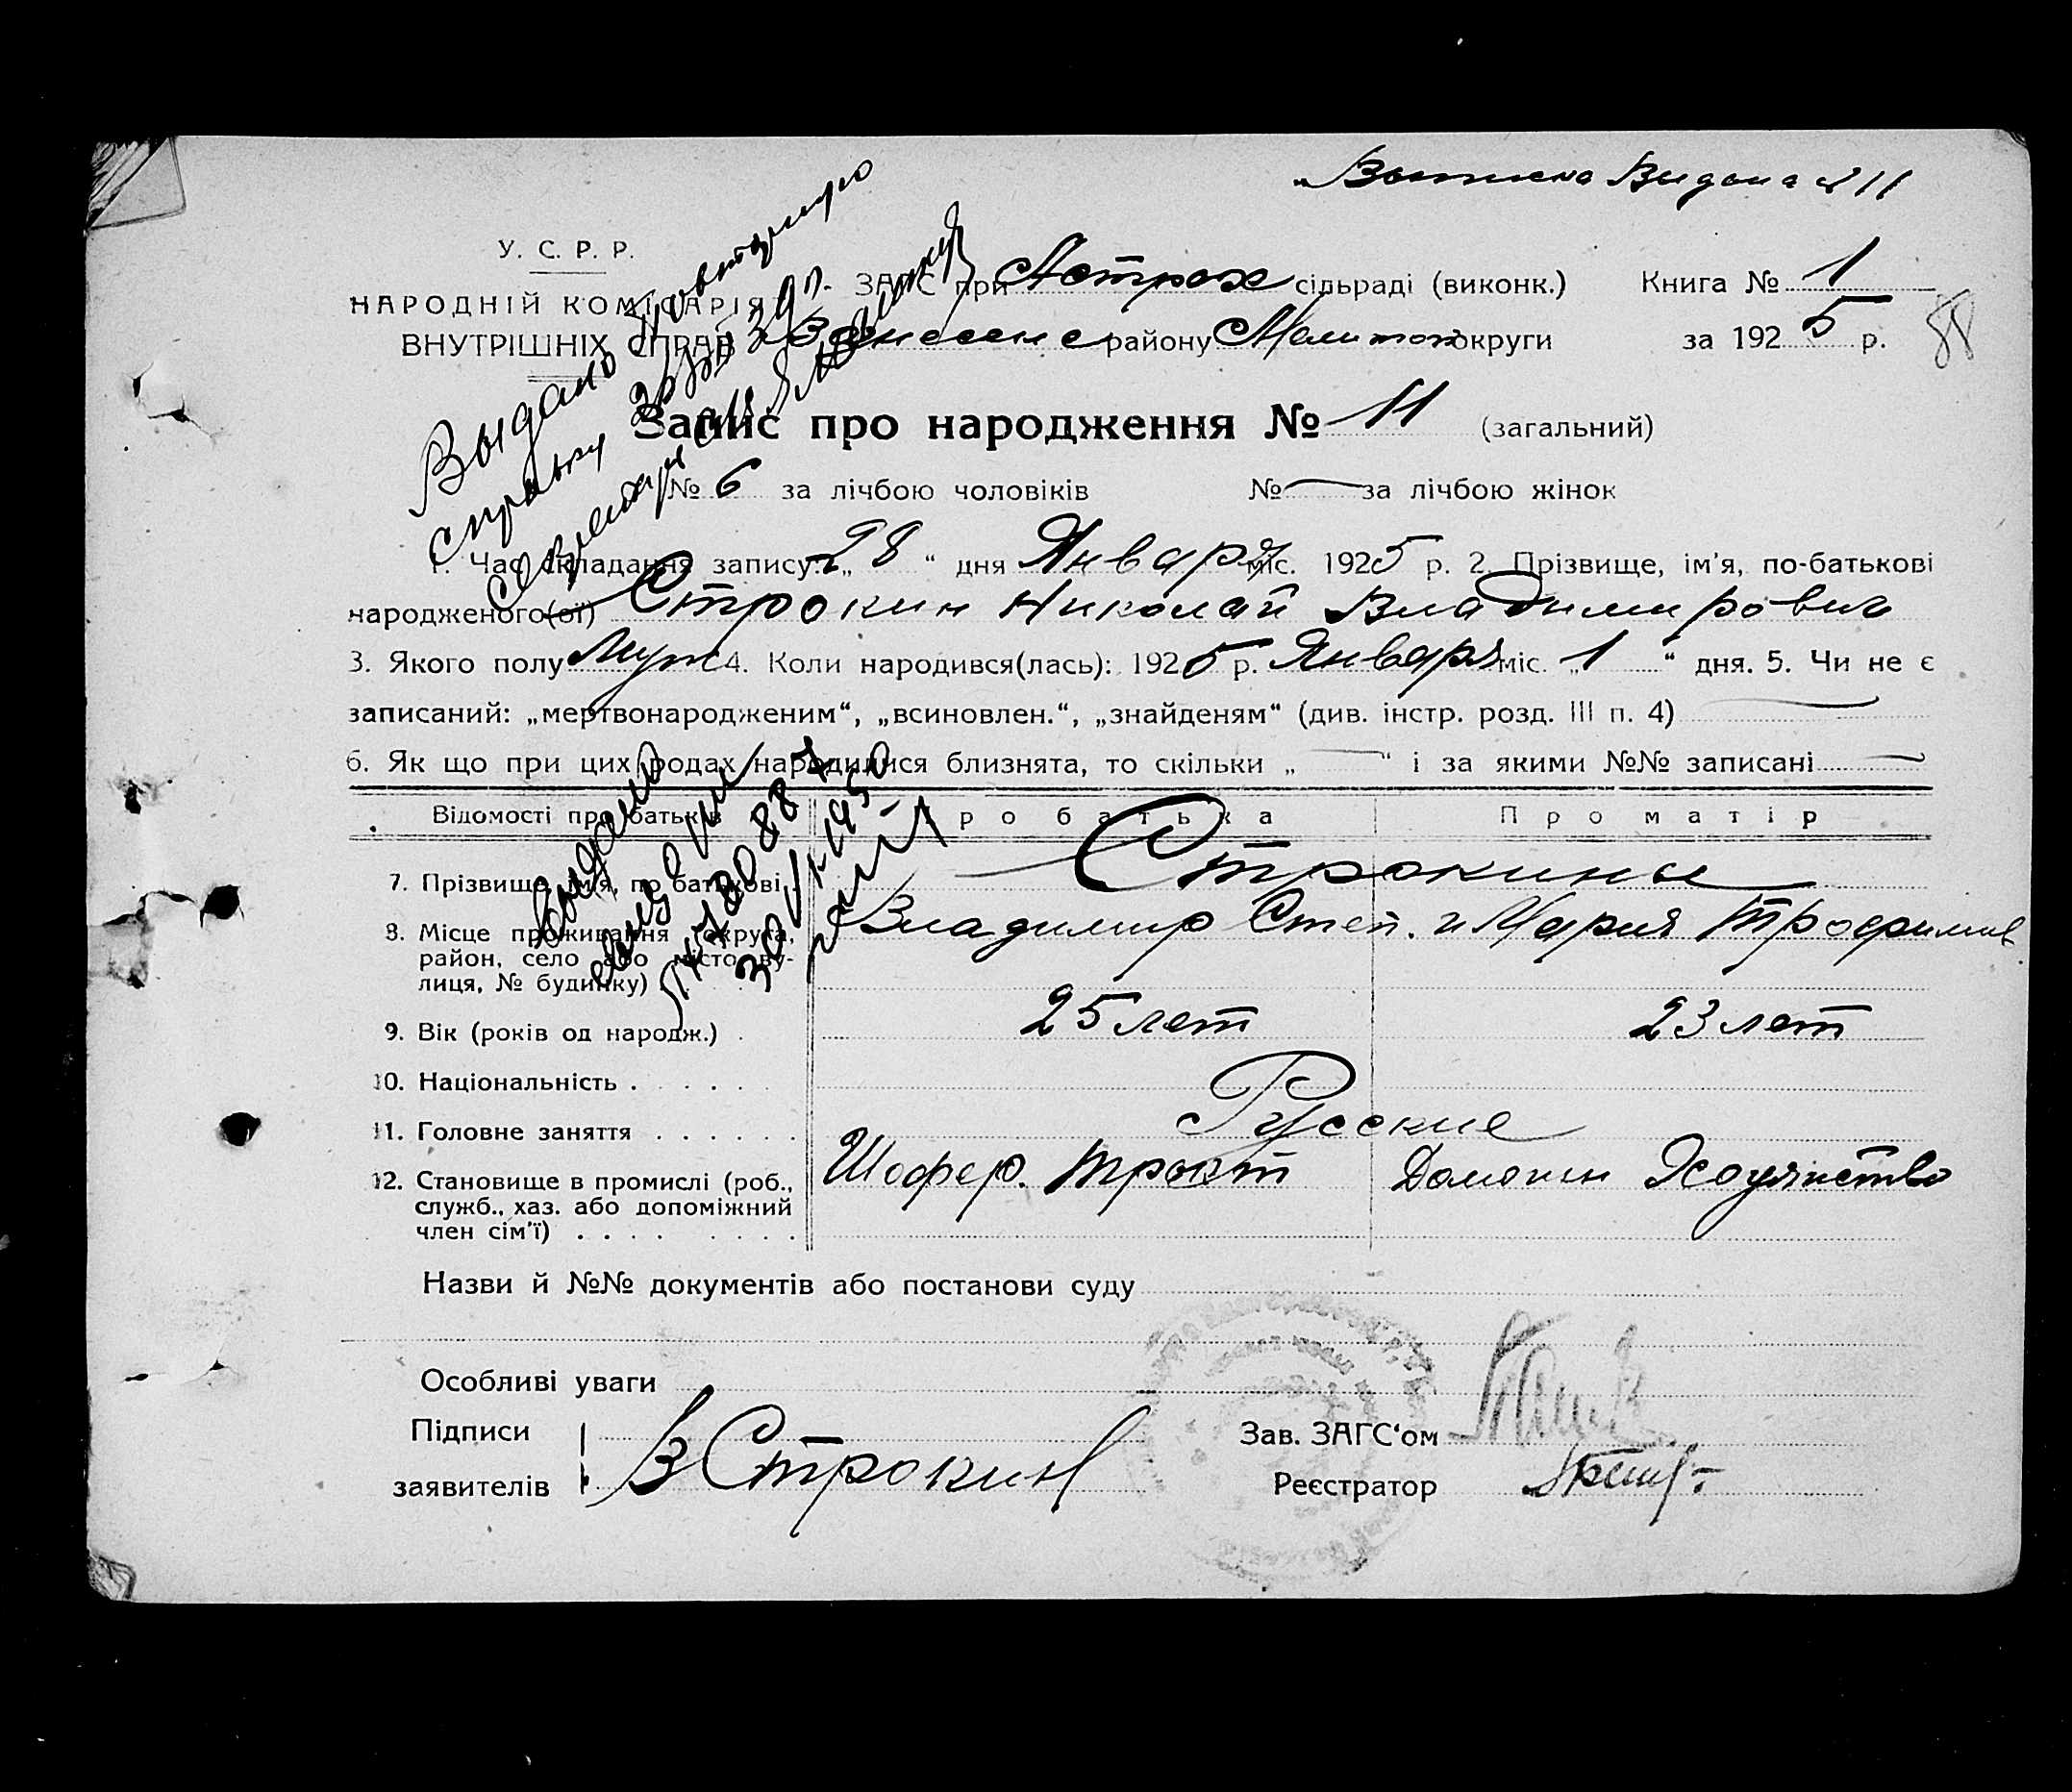 Выписка Видана № 11
У. С. Р. Р.
НАРОДНІЙ КОМІСАРІЯТ
ВНУТРІШНІХ СПРАВ
ЗАГС при Астрах сільраді (виконк.) Книга № 1
району Мелитоп округи за 1925 р.
88
Запис про народження № 11 (загальний)
№ 6 за лічбою чоловіків № — за лічбою жінок
1. Час складання запису: „28“ дня Января міс. 1925 р. 2. Прізвище, ім'я, по-батькові
народженого(ої) Строкин Николай Владимирович
3. Якого полу Муж 4. Коли народився(лась): 1925 р. Января міс. „1“ дня. 5. Чи не є
записаний: „мертвонародженим“, „всиновлен.“, „знайденям“ (див. інстр. розд. III п. 4) —
6. Як що при цих родах народилися близнята, то скільки „—“ і за якими №№ записані —
Відомості про батьків Про батька Про матір
7. Прізвище, ім'я, по батькові Строкины
8. Місце проживання (округа, Владимир Степ. и Мария Трофимов
район, село або місто, ву-
лиця, № будинку)
9. Вік (років од народж.) 25 лет 23 лет
10. Національність
Русские
11. Головне заняття
12. Становище в промислі (роб., Шофер. Домашн Хозяйство
служб., хаз. або допоміжний
член сім'ї)
Назви й №№ документів або постанови суду
Особливі уваги
Підписи
заявителів В Строкин
Зав. ЗАГС'ом
Реєстратор
Выдано
справку
Выдано